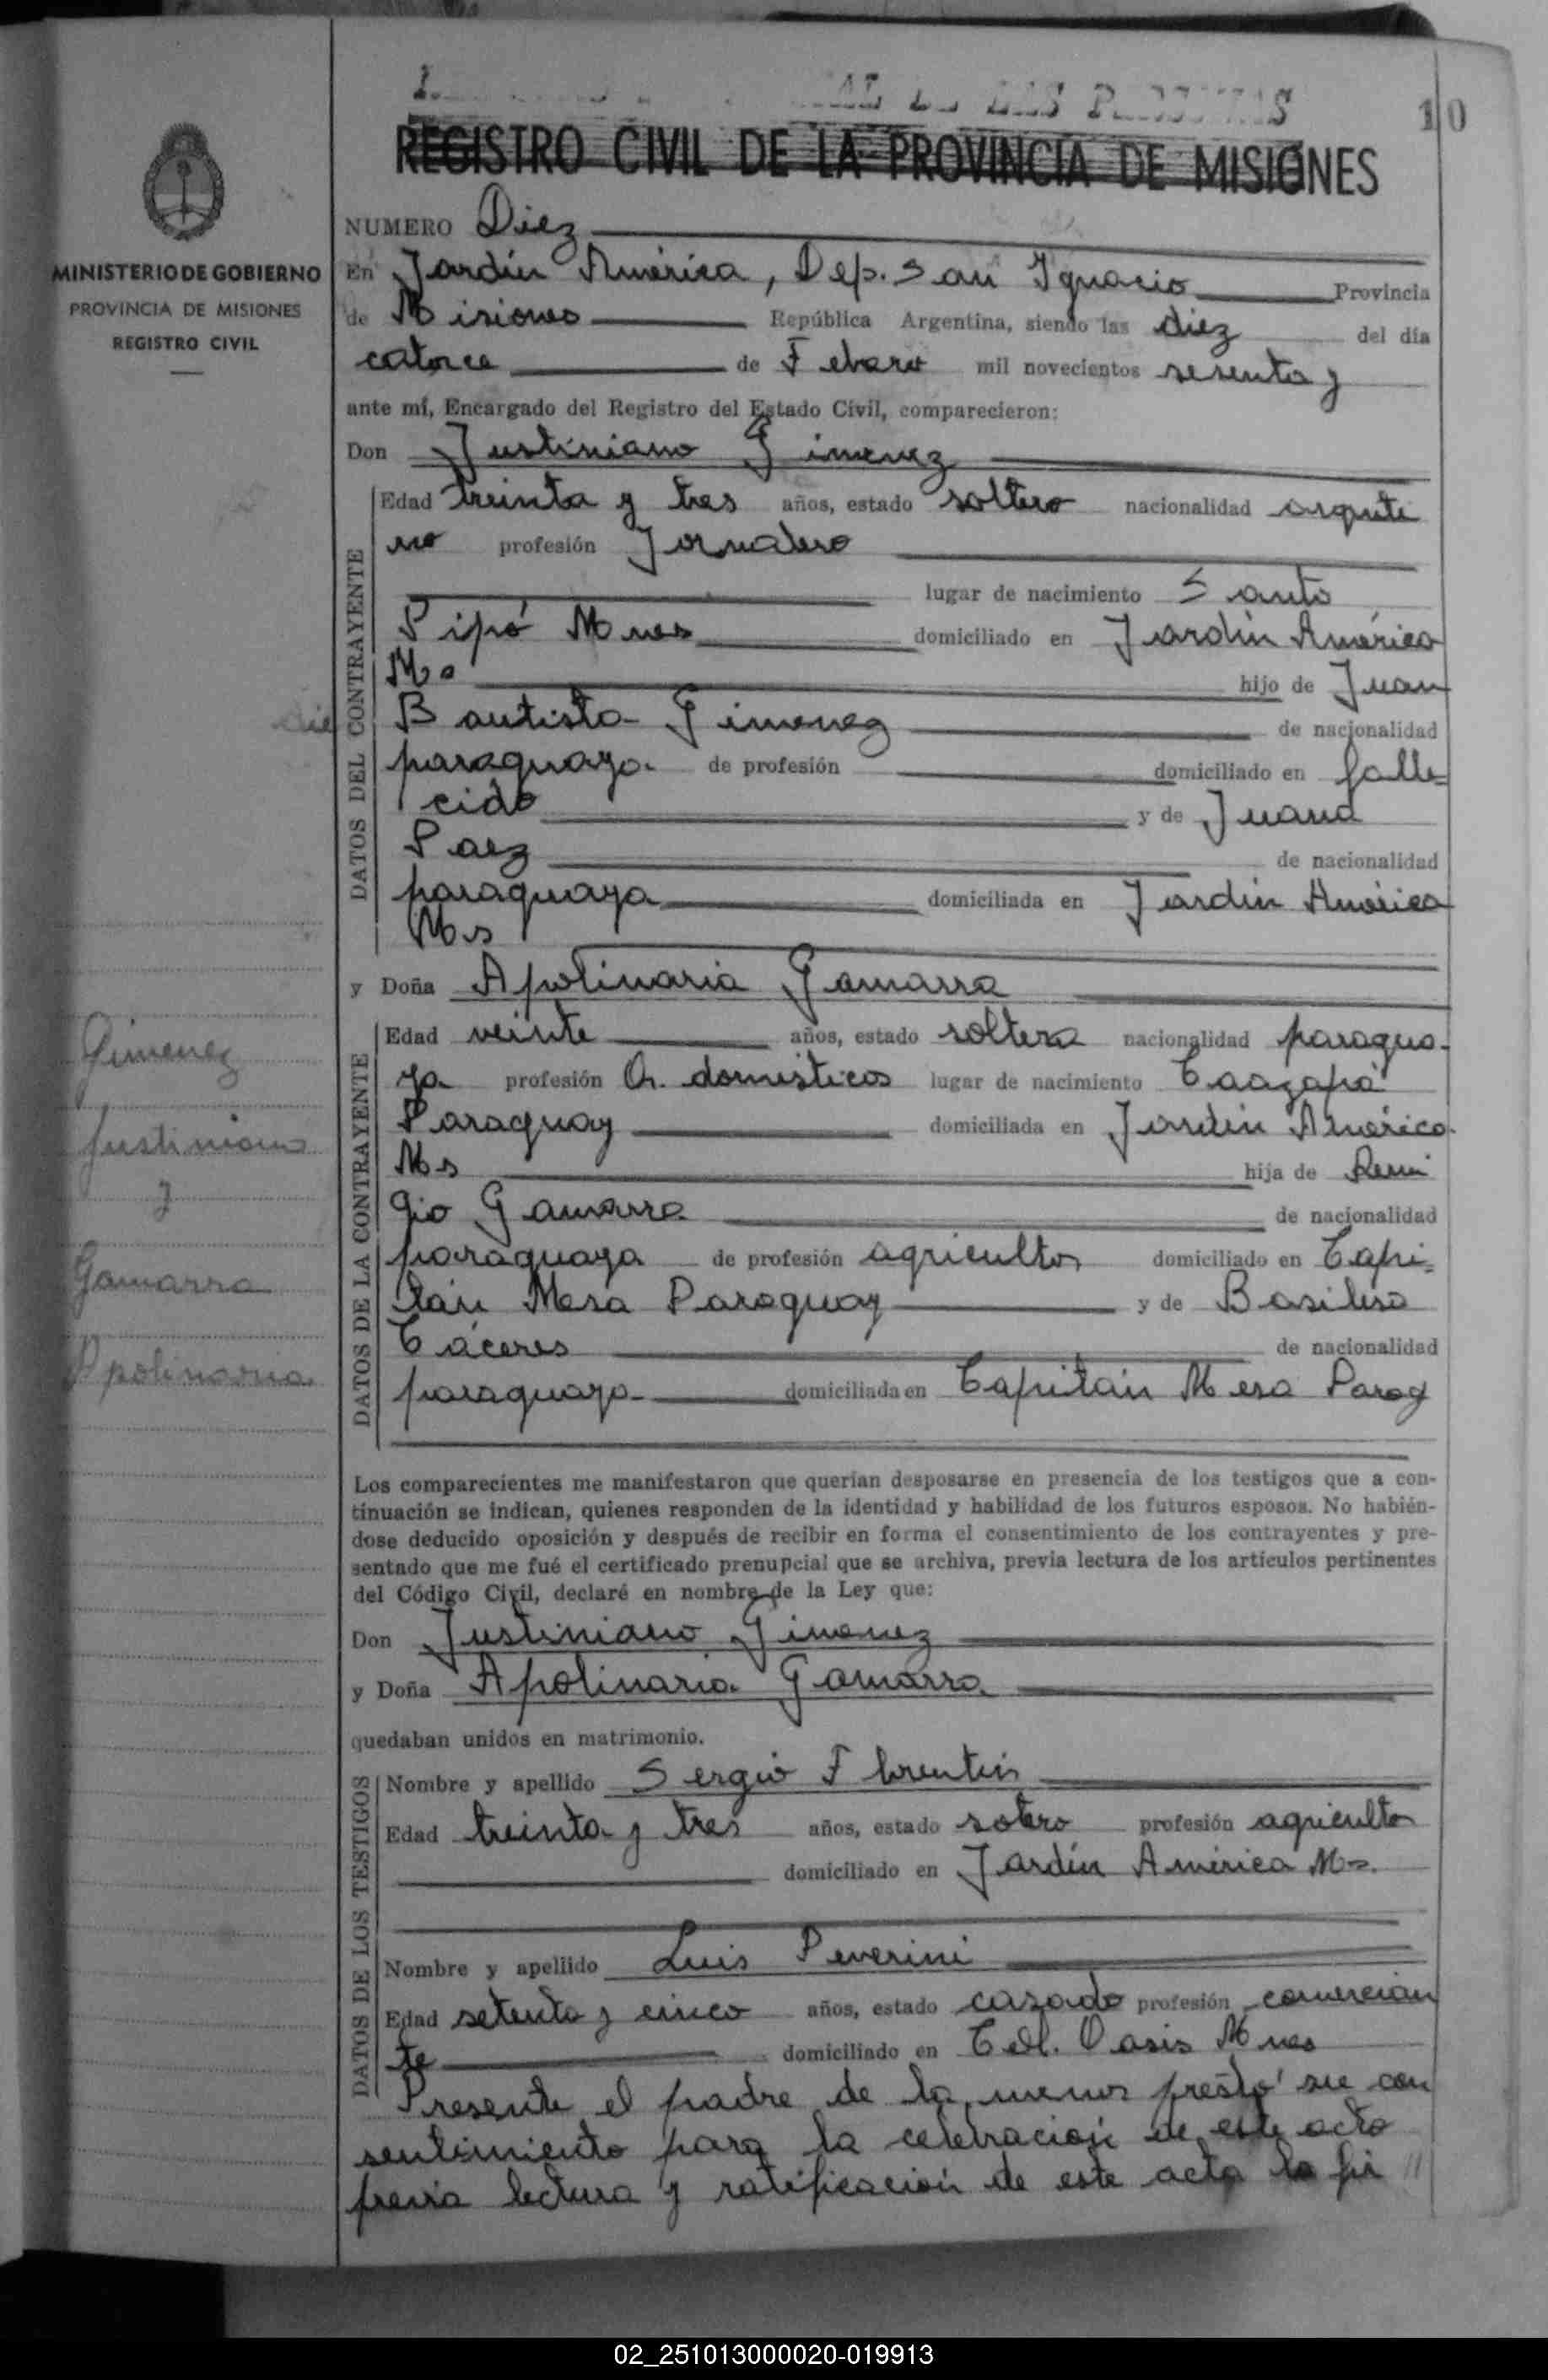 10
REGISTRO CIVIL DE LA PROVINCIA DE MISIONES
MINISTERIO DE GOBIERNO
PROVINCIA DE MISIONES
REGISTRO CIVIL
NUMERO Diez
En Jardín América, Dep. San Ignacio Provincia
de Misiones República Argentina, siendo las diez del día
catorce de Febrero mil novecientos sesenta y
ante mí, Encargado del Registro del Estado Civil, comparecieron:
Don Justiniano Gimenez
DATOS DEL CONTRAYENTE
Edad treinta y tres años, estado soltero nacionalidad argenti
no profesión Jornalero
lugar de nacimiento Santo
Pipó Mnes domiciliado en Jardín América
Ms hijo de Juan
Bautista Gimenez de nacionalidad
paraguaya de profesión domiciliado en falle-
cido y de Juana
Paez de nacionalidad
paraguaya domiciliada en Jardín América
Ms
y Doña Apolinaria Gamarra
DATOS DE LA CONTRAYENTE
Edad veinte años, estado soltera nacionalidad paragua-
ya profesión Q. domésticos lugar de nacimiento Caazapá
Paraguay domiciliada en Jardín América
Ms hija de Remi
gio Gamarra de nacionalidad
paraguaya de profesión agricultor domiciliado en Capi-
tán Mesa Paraguay y de Basilisa
Cáceres de nacionalidad
paraguaya domiciliada en Capitán Mesa Parag
Gimenez
Justiniano
y
Gamarra
Apolinaria
Los comparecientes me manifestaron que querían desposarse en presencia de los testigos que a con-
tinuación se indican, quienes responden de la identidad y habilidad de los futuros esposos. No habién-
dose deducido oposición y después de recibir en forma el consentimiento de los contrayentes y pre-
sentado que me fué el certificado prenupcial que se archiva, previa lectura de los artículos pertinentes
del Código Civil, declaré en nombre de la Ley que:
Don Justiniano Gimenez
y Doña Apolinaria Gamarra
quedaban unidos en matrimonio.
DATOS DE LOS TESTIGOS
Nombre y apellido Sergio Florentin
Edad treinta y tres años, estado soltero profesión agricultor
domiciliado en Jardín América Ms.
Nombre y apellido Luis Peverini
Edad setenta y cinco años, estado casado profesión comercian
te domiciliado en Col. Oasis Mnes
Presente el padre de la menor prestó su con
sentimiento para la celebración de este acto
previa lectura y ratificación de este acta la fir //
02_251013000020-019913